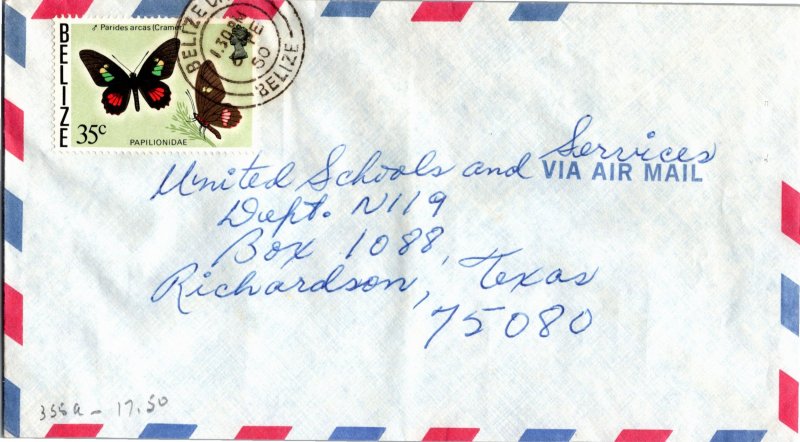 ♂ Parides arcas (Cramer)
BELIZE
35c
PAPILIONIDAE
BELIZE
1.30 PM
50
BELIZE
United Schools and Services
VIA AIR MAIL
Dept. N119
Box 1088,
Richardson, Texas
75080
355a - 17.50